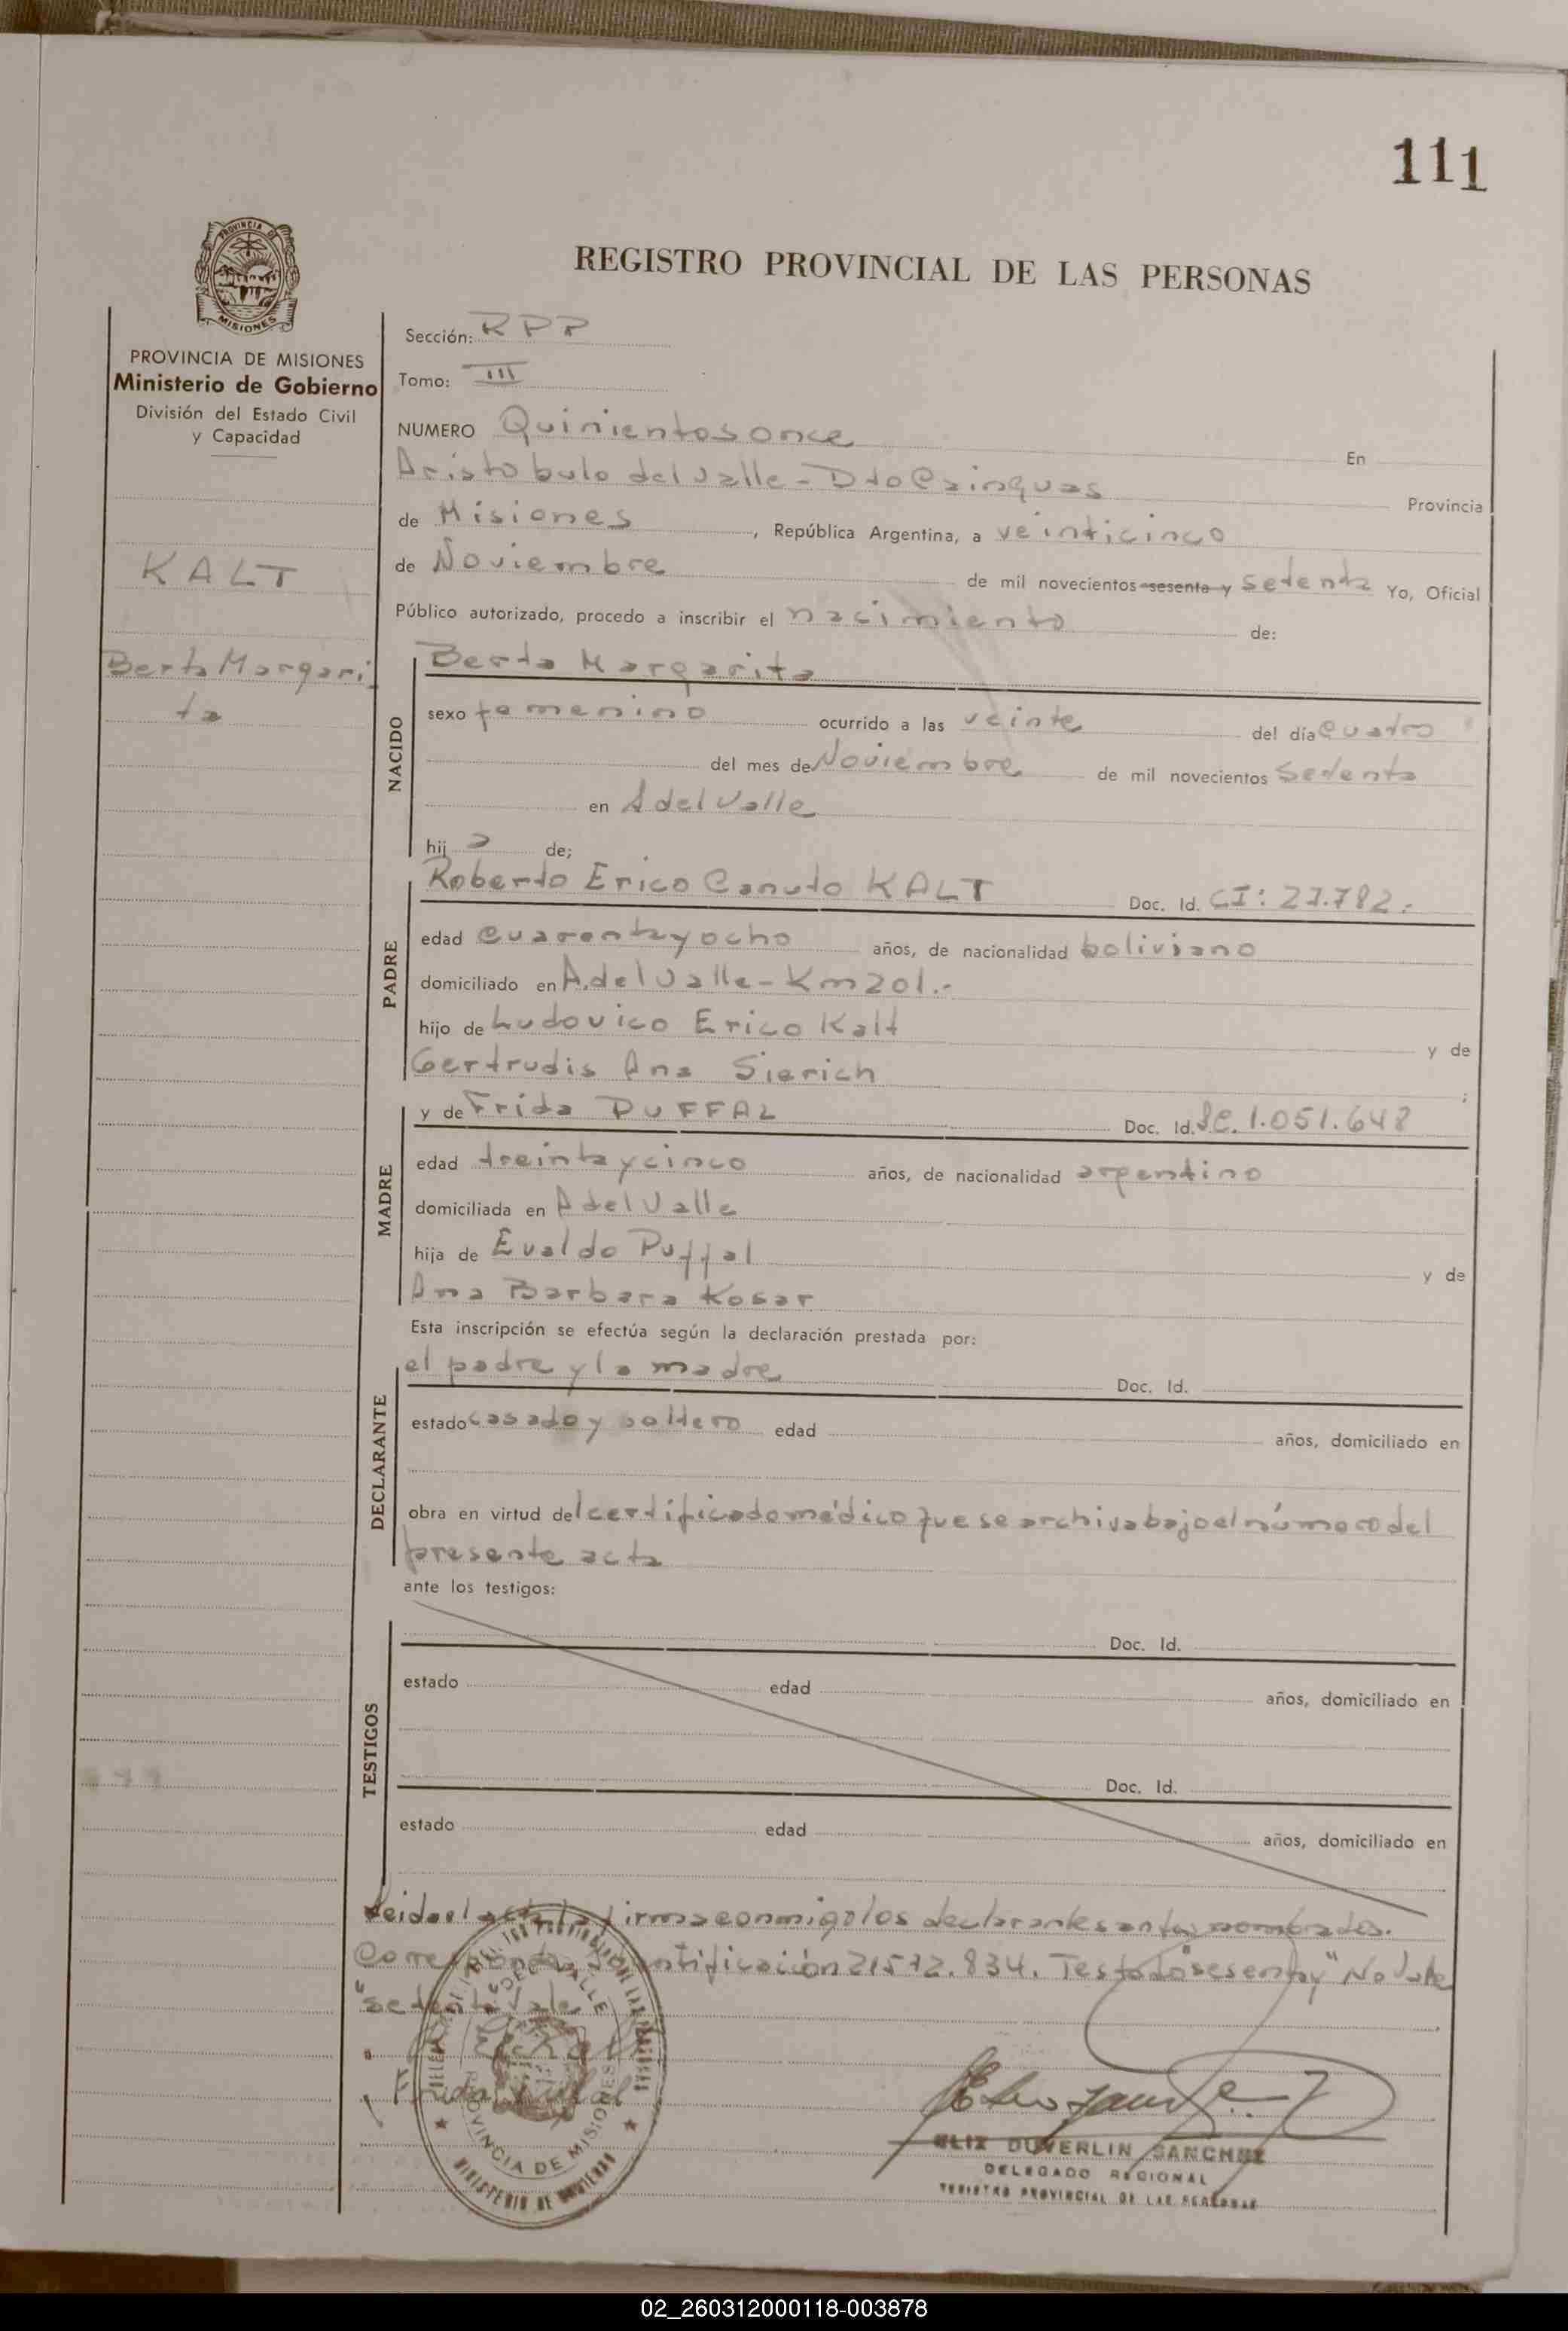 111
PROVINCIA DE
MISIONES
REGISTRO PROVINCIAL DE LAS PERSONAS
PROVINCIA DE MISIONES
Ministerio de Gobierno
División del Estado Civil
y Capacidad
KALT
Berta Margari
ta
Sección: RPP
Tomo: III
NUMERO Quinientos once En
Aristobulo del Valle - Dto Cainguas Provincia
de Misiones, República Argentina, a veinticinco
de Noviembre de mil novecientos sesenta y setenta Yo, Oficial
Público autorizado, procedo a inscribir el nacimiento de:
NACIDO
Berta Margarita
sexo femenino ocurrido a las veinte del día cuatro
del mes de Noviembre de mil novecientos setenta
en A del Valle
hij a de;
PADRE
Roberto Erico Canuto KALT Doc. Id. CI: 27.782.-
edad cuarenta y ocho años, de nacionalidad boliviano
domiciliado en A. del Valle - Km 201.-
hijo de Ludovico Erico Kalt y de
Gertrudis Ana Sierich ;
MADRE
y de Frida PUFFAL Doc. Id. LC. 1.051.648
edad treinta y cinco años, de nacionalidad argentino
domiciliada en A del Valle
hija de Evaldo Puffal y de
Ana Barbara Kosar
Esta inscripción se efectúa según la declaración prestada por:
DECLARANTE
el padre y la madre Doc. Id.
estado casado y soltero edad años, domiciliado en
obra en virtud del certificado médico que se archiva bajo el número del
presente acta
ante los testigos:
TESTIGOS
Doc. Id.
estado edad años, domiciliado en
Doc. Id.
estado edad años, domiciliado en
Leida el acta la firma conmigo los declarantes antes nombrados.
Corresponde identificación 21.572.834. Testado "sesenta y" No Vale
"setenta" Vale
Frida Puffal
PROVINCIA DE MISIONES
MINISTERIO DE GOBIERNO
ELIX DUVERLIN SANCHEZ
DELEGADO REGIONAL
REGISTRO PROVINCIAL DE LAS PERSONAS
02_260312000118-003878